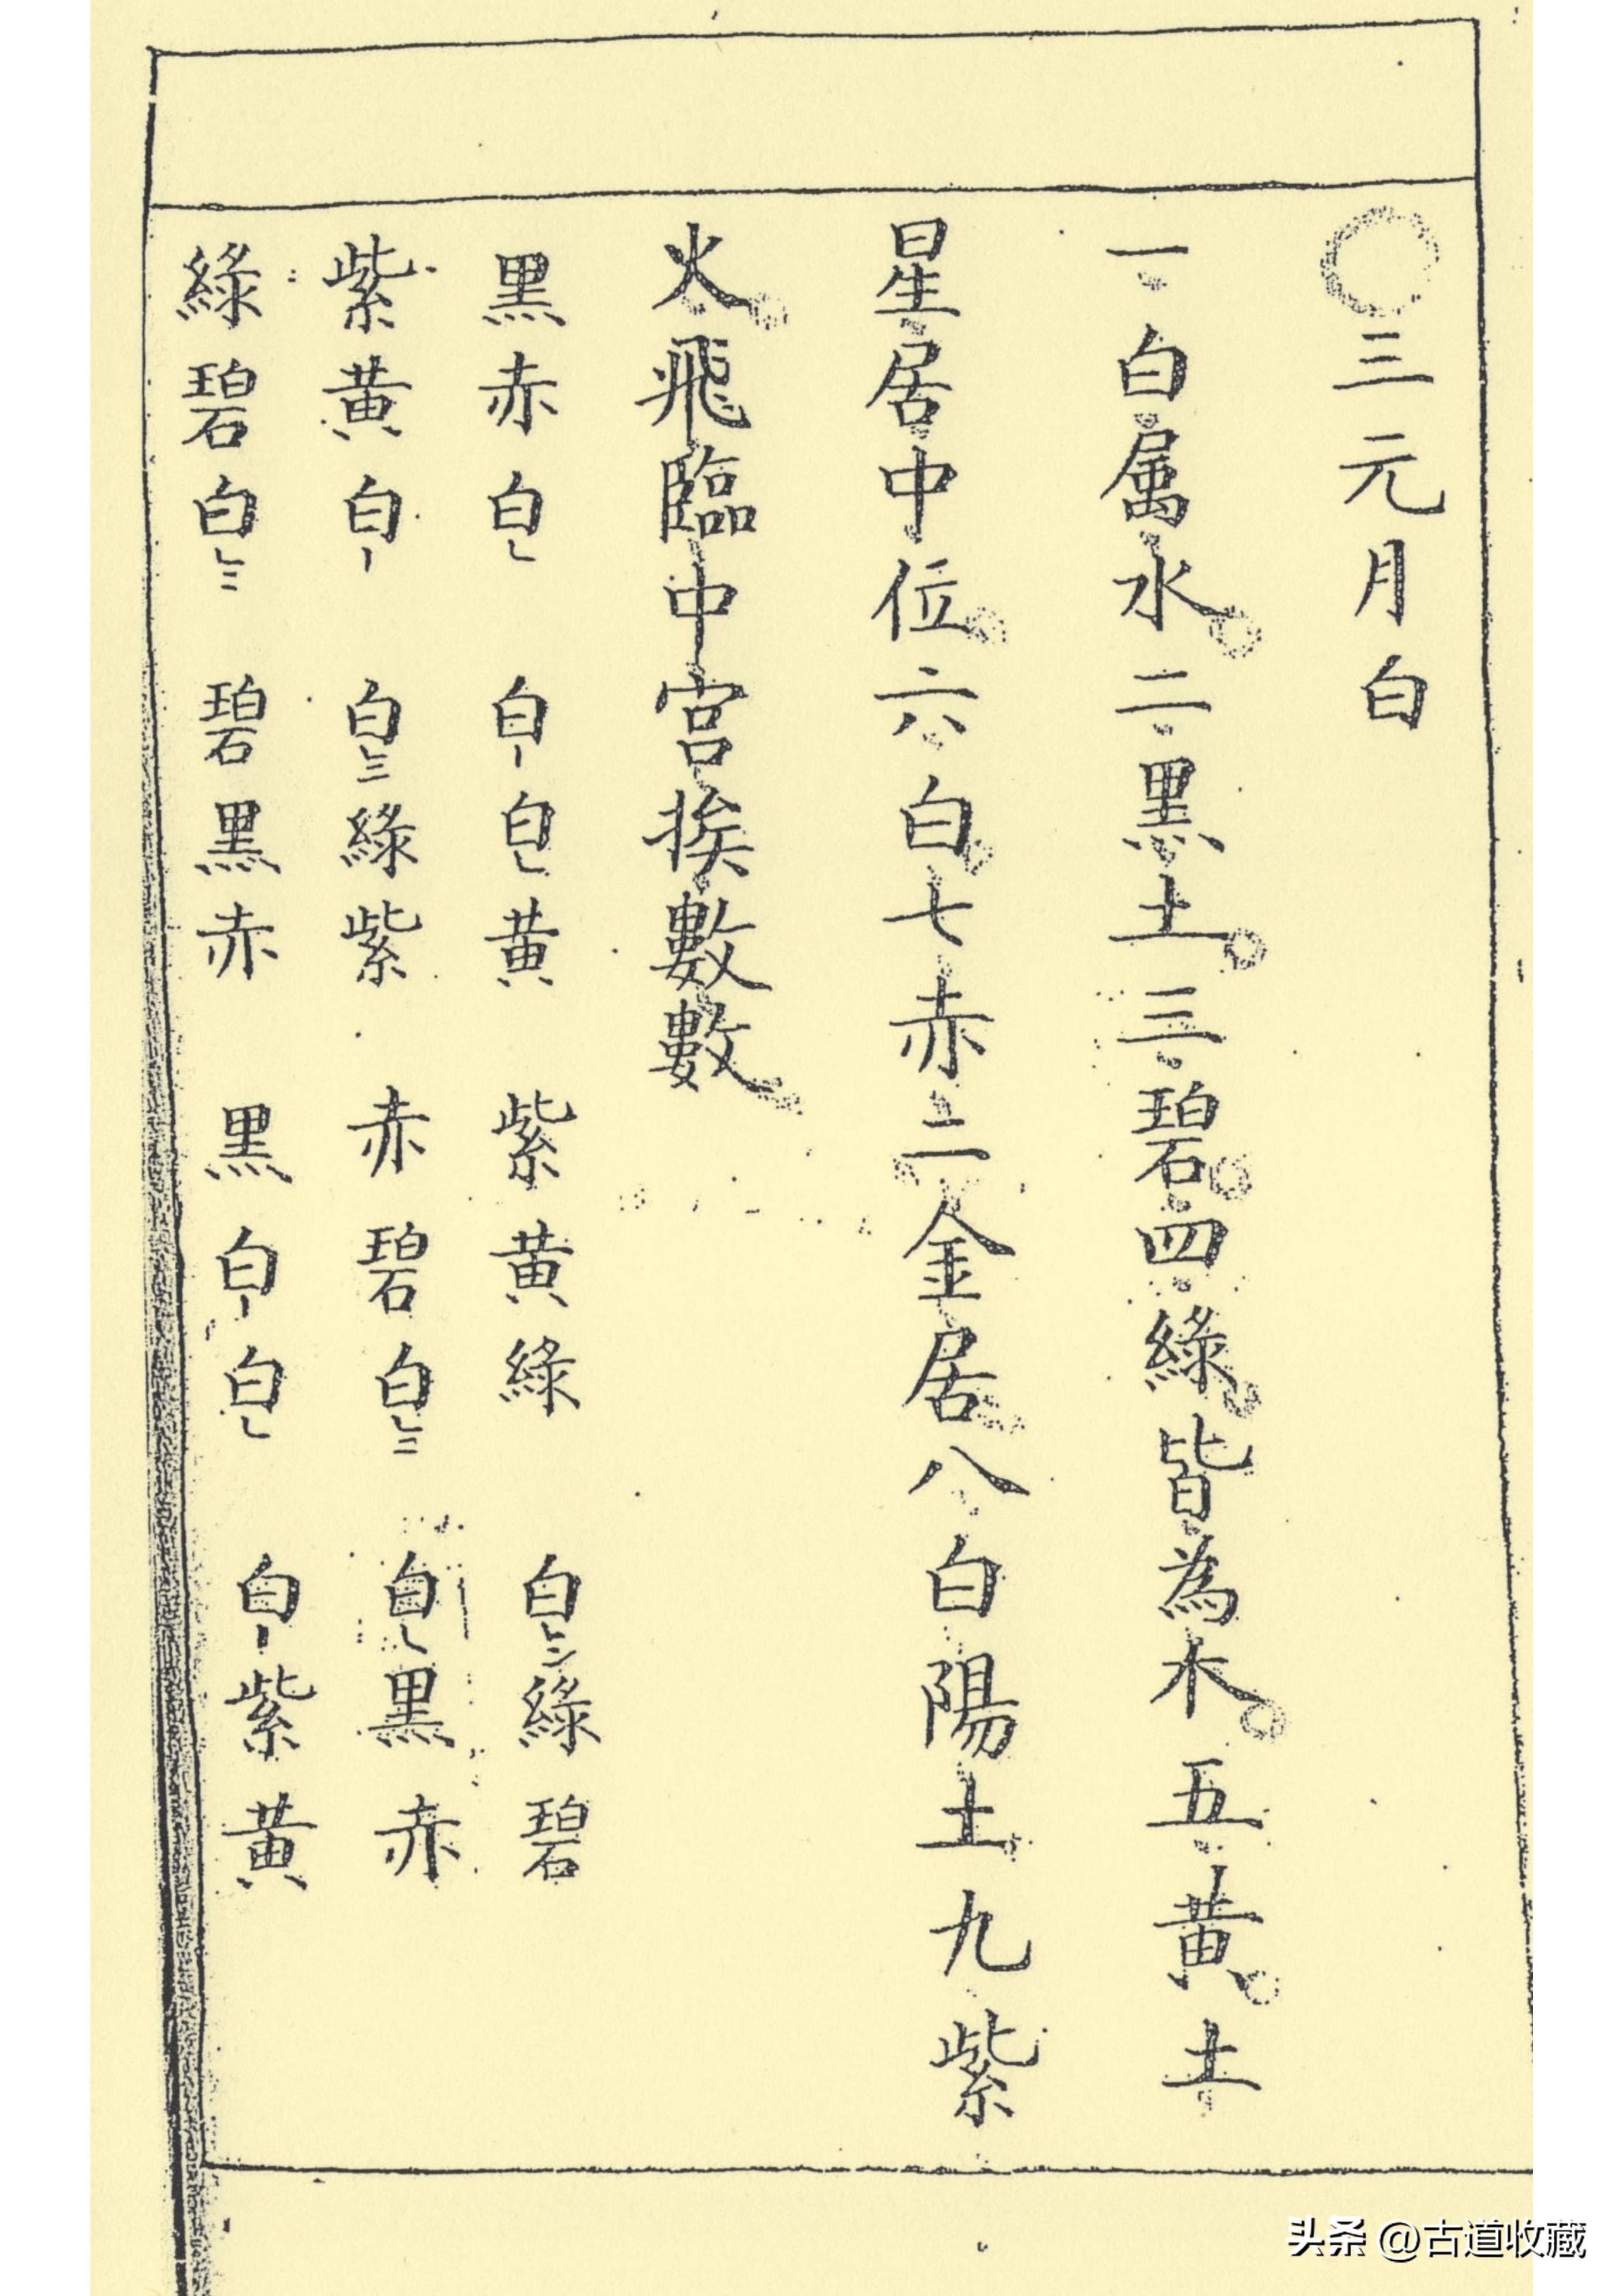 ○三元月白
一白属水二黑土三碧四綠皆為木五黄土
星居中位六白七赤二金居八白陽土九紫
火飛臨中宮挨數數
黑赤白〦 白〡白〦黄 紫黄綠 白〧綠碧
紫黄白〡 白〨綠紫 赤碧白〨 白〦黑赤
綠碧白〨 碧黑赤 黑白〡白〦 白〡紫黄
头条 @古道收藏